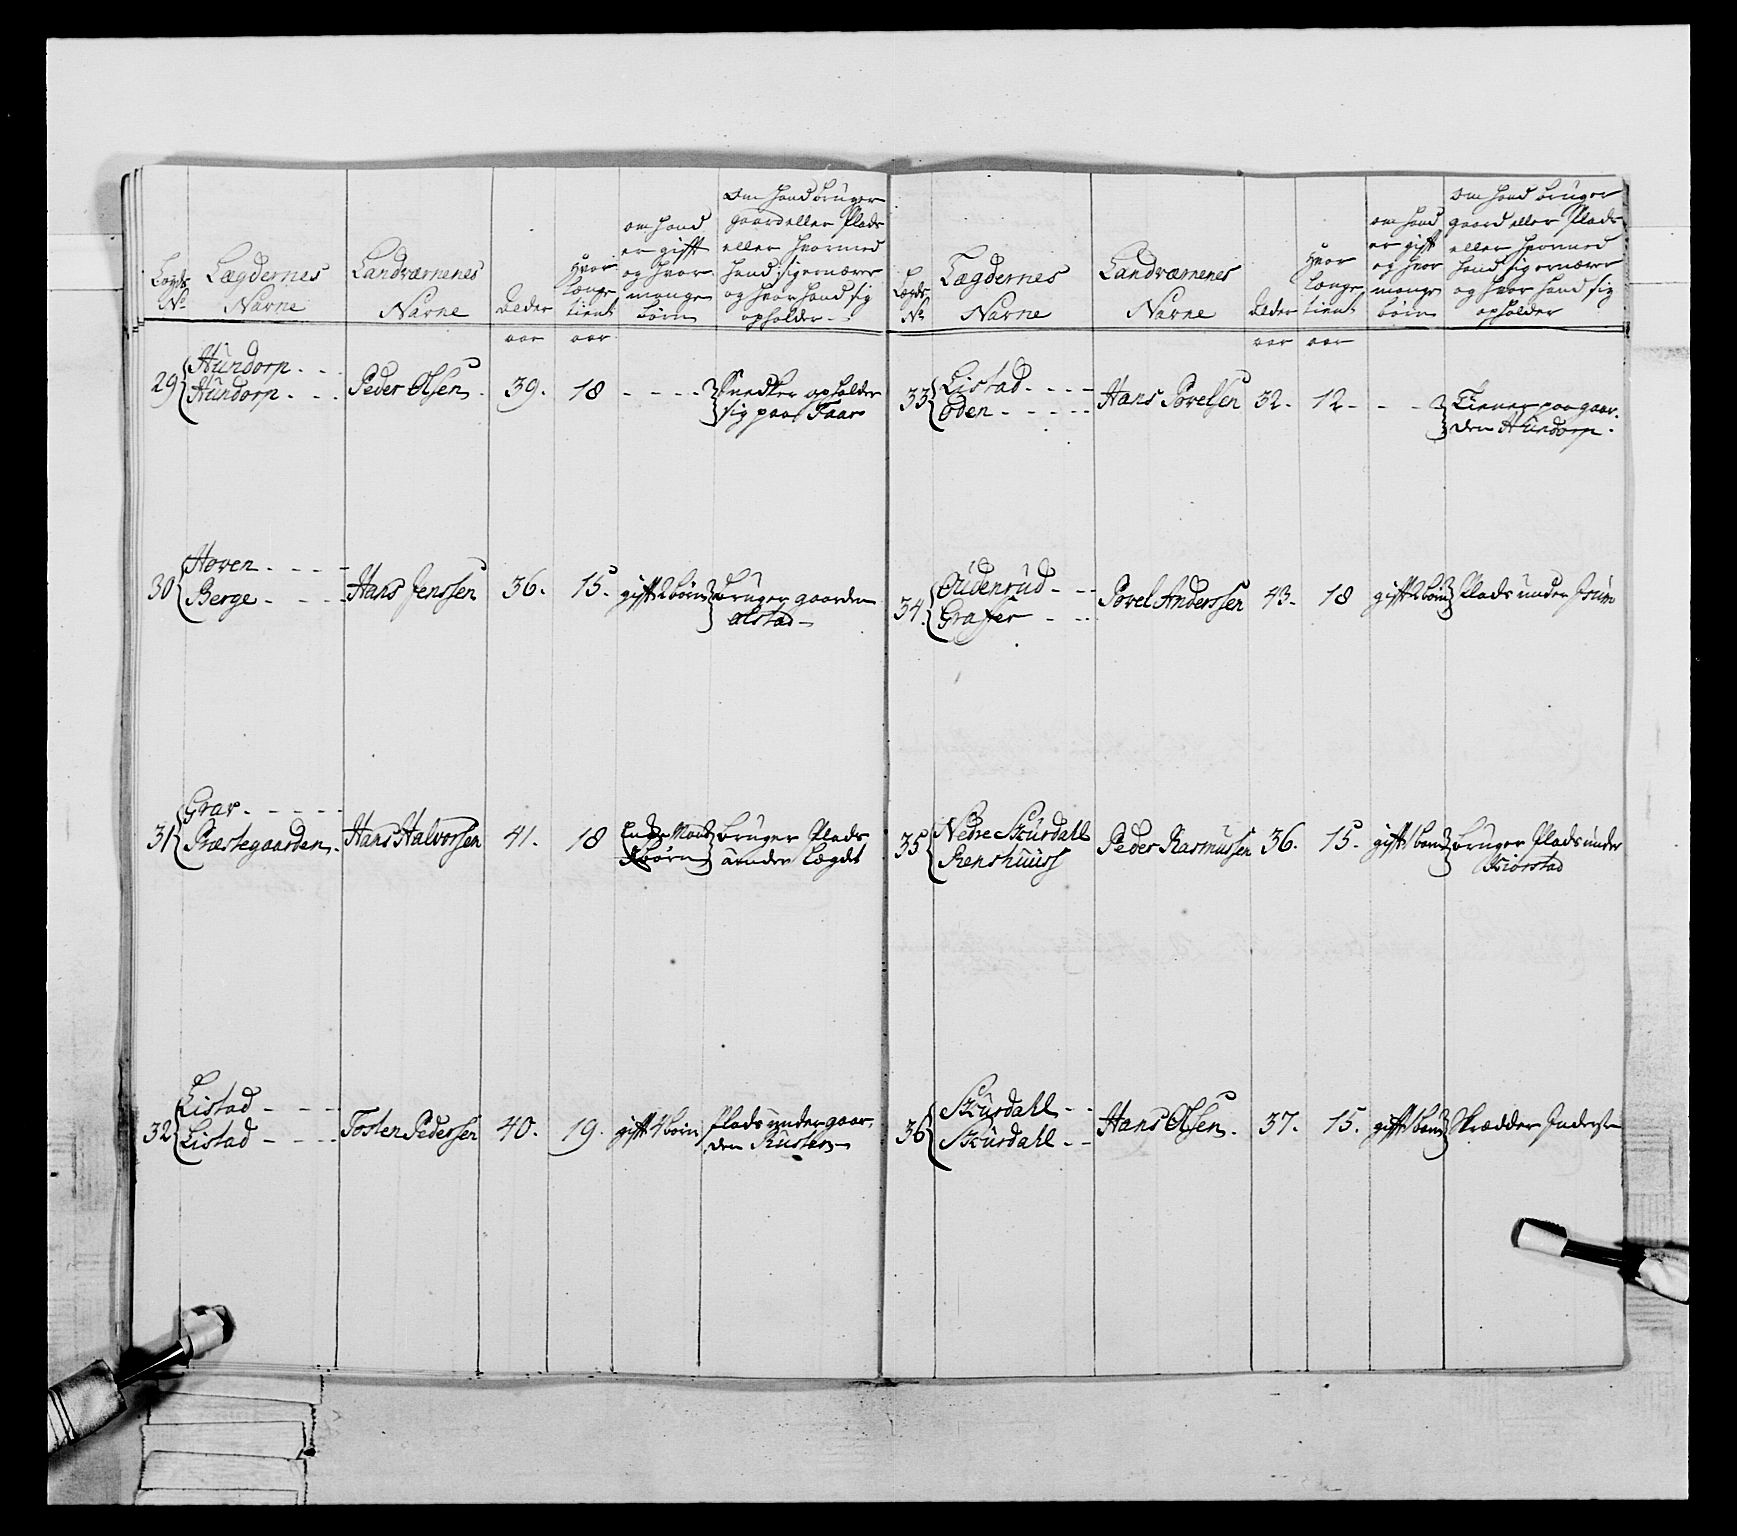 Lægds No
Lægdernes Navne
Landværnenes Navne
Alder
Hvor længe tient
om hand er gifft og hvor mange børn
Om hand bruger gaard eller Plads eller hvormed hand sig ernærer og hvor hand sig opholder
aar aar
29 Hundorp
Hundorp
Peder Olsen 39. 18
Snedker opholder
sig paa Faar
30 Hoven
Berge
Hans Jenssen 36. 15. gifft 2 børn
bruger gaarden
Alstad
31 Grav
Præstegaarden
Hans Halvorsen 41. 18
Enke Mand
børn
bruger Plads
under Lægdet
32 Listad
Listad
Tosten Pederssen 40. 19. gifft 4 børn
Plads under gaar
den Rusten
Lægds No
Lægdernes Navne
Landværnenes Navne
Alder
Hvor længe tient
om hand er gift og hvor mange børn
Om hand bruger gaard eller Plads eller hvormed hand sig ernærer og hvor hand sig opholder
aar aar
33 Listad
Oden
Hans Povelsen 32. 12
Tiener paa gaar
den Hundorp
34 Oudenrud
Graffer
Povel Anderssen 43. 18 gifft 2 børn
Plads under
35 Nedre Skurdahl
Renshuuss
Peder Rasmussen 36. 15. gifft 1 barn
bruger Plads under
Kiørstad
36 Skurdahl
Skurdahl
Hans Olsen 37. 15. gifft 1 barn
Skrædder Inderste